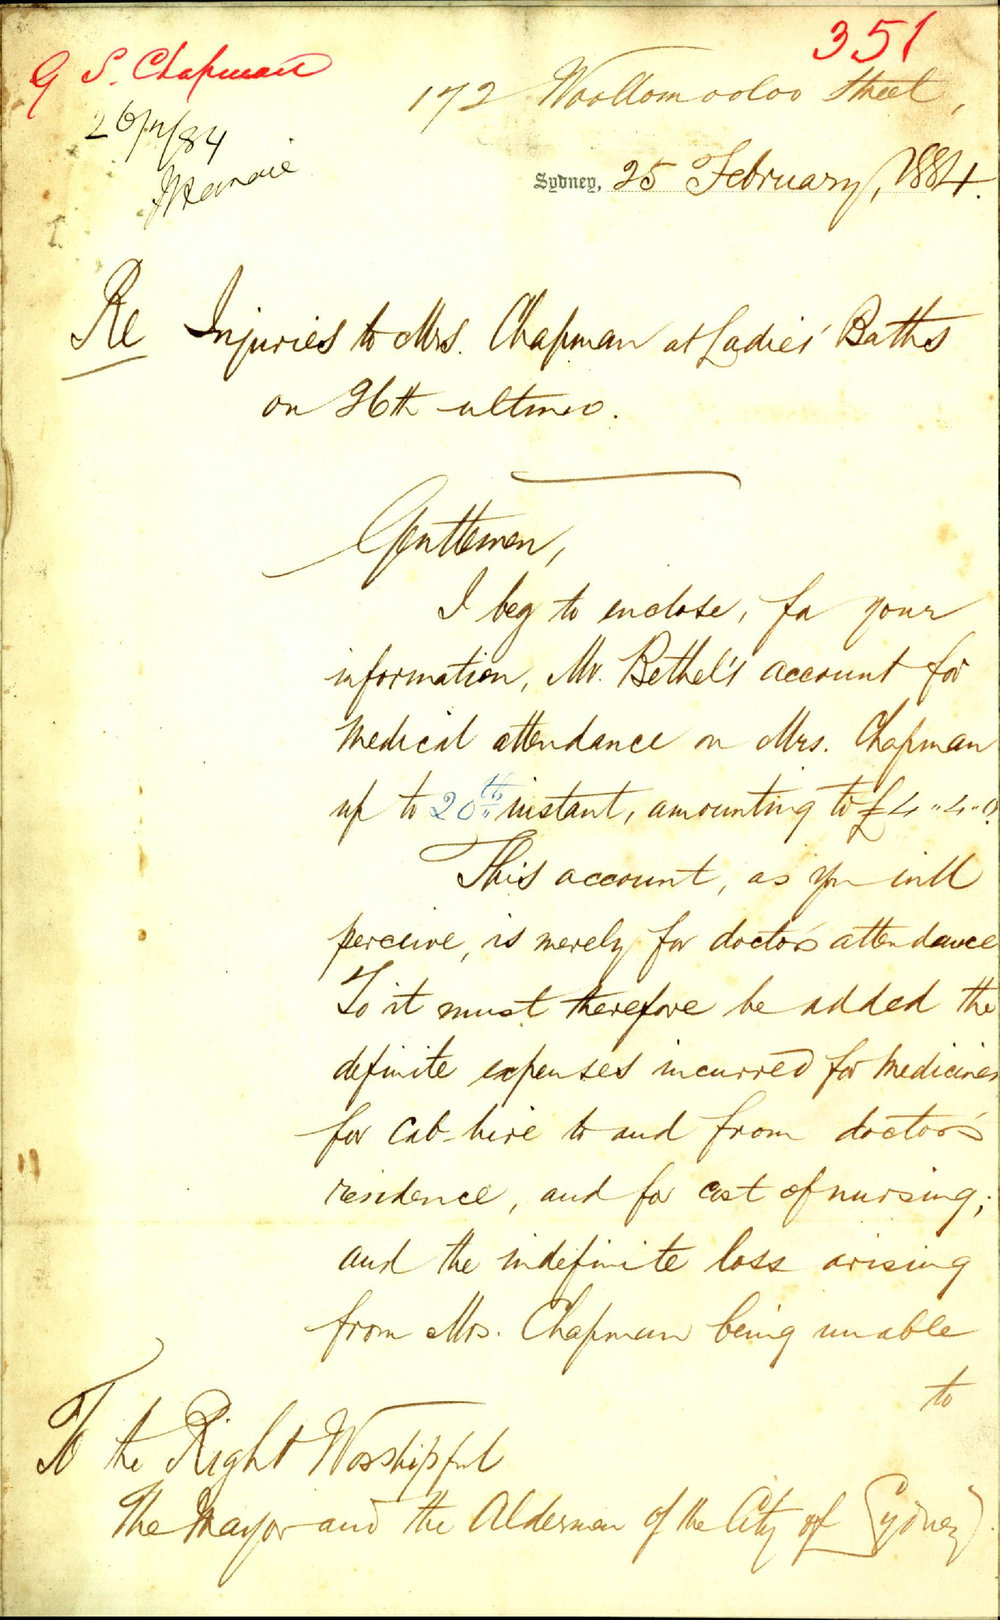 351
G S. Chapman
172 Woolloomooloo Street,
26/2/84
Sydney, 25 February, 1884.
Re Injuries to Mrs. Chapman at Ladies' Baths
on 26th ultimo.
Gentlemen,
I beg to enclose, for your
information, Mr. Bethel's account for
medical attendance on Mrs. Chapman
up to 20th instant, amounting to £4"4"0.
This account, as you will
perceive, is merely for doctor's attendance
To it must therefore be added the
definite expenses incurred for medicines
for cab-hire to and from doctor's
residence, and for cost of nursing;
and the indefinite loss arising
from Mrs. Chapman being unable
to
To the Right Worshipful
The Mayor and the Aldermen of the City of Sydney.